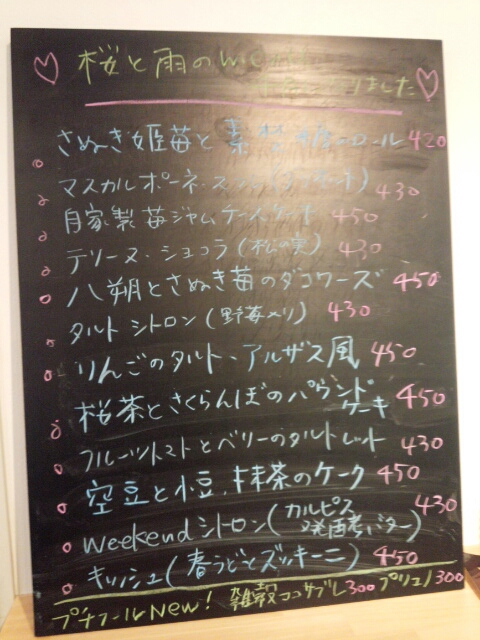 桜と雨のweekend
になりました
さぬき姫苺と素焚糖のロール 420
マスカルポーネ・ 430
自家製苺ジャムチーズケーキ 450
テリーヌ・ショコラ(松の実) 430
八朔とさぬき苺のダコワーズ 450
タルトシトロン(野苺入り) 430
りんごのタルト、アルザス風 450
桜茶とさくらんぼのパウンドケーキ 450
フルーツトマトとベリーのタルトレット 430
空豆と小豆、抹茶のケーク 450
weekendシトロン(カルピス発酵バター) 430
キッシュ(春うどとズッキーニ) 450
プチフールNew! 雑穀ココサブレ300 プリュノ300